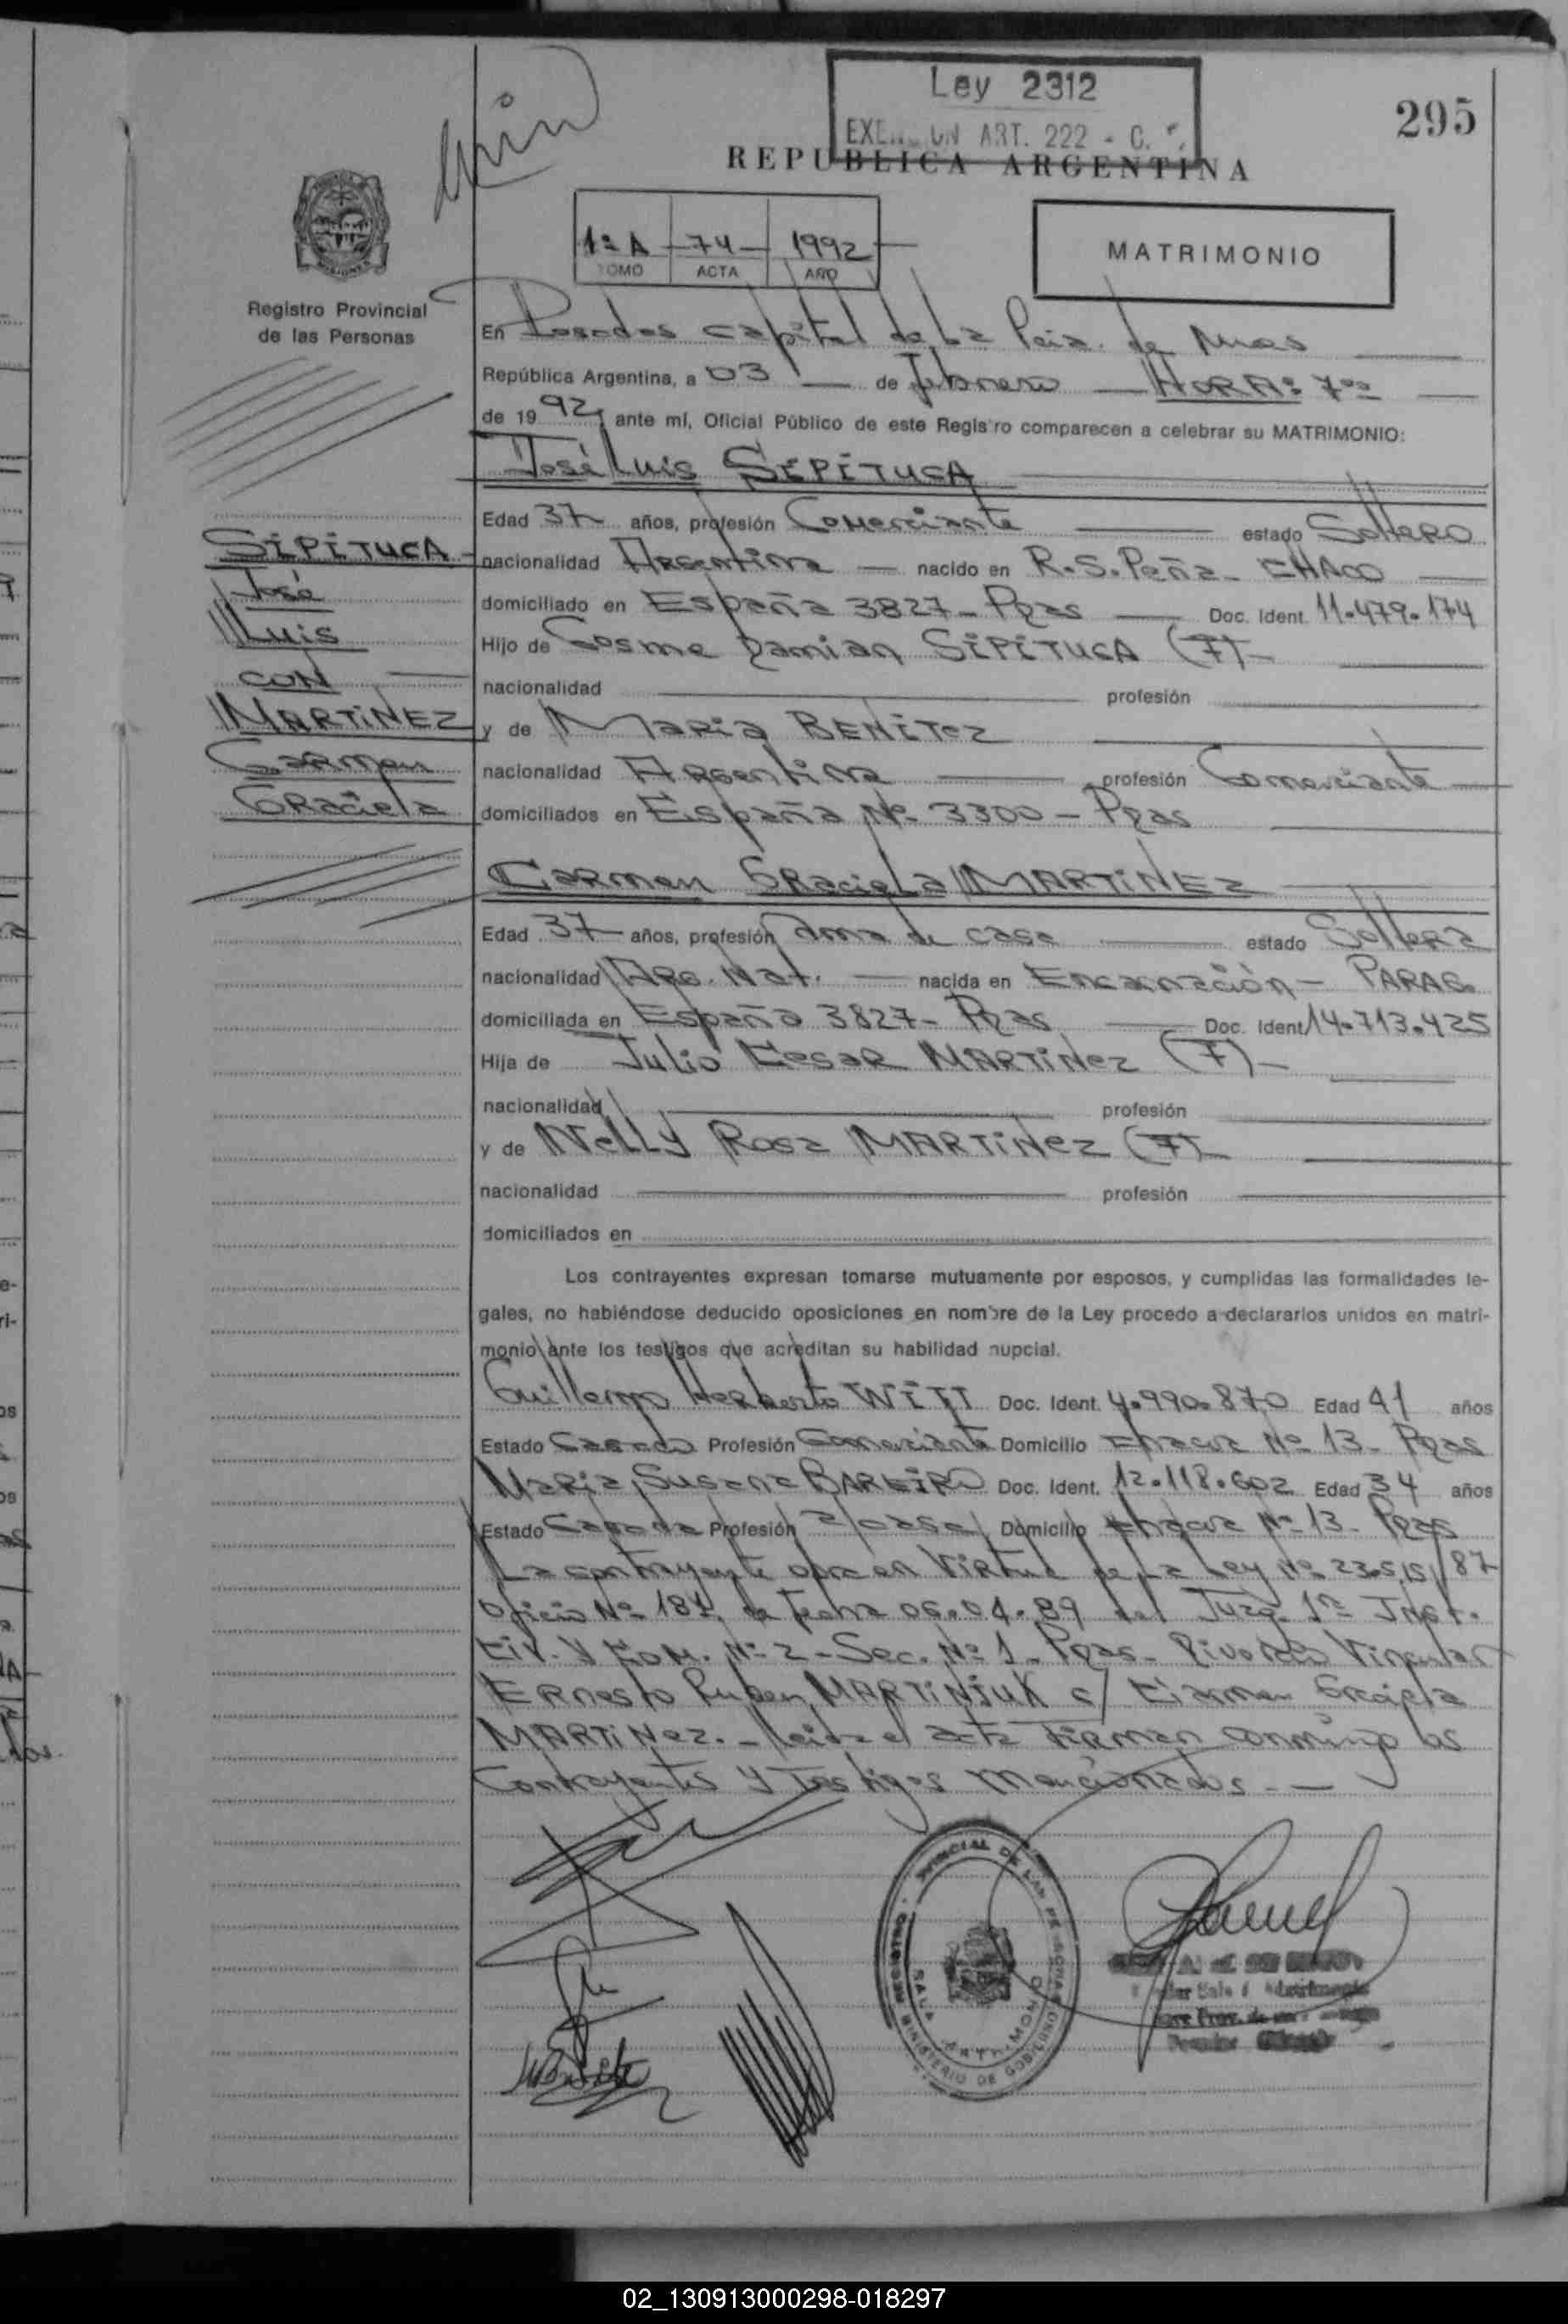 Ley 2312
ART. 222 - C.
295
REPUBLICA ARGENTINA
1º A - 74 - 1992
TOMO ACTA AÑO
MATRIMONIO
Registro Provincial
de las Personas
En Posadas capital de La Pcia. de Mnes
República Argentina, a 03 de febrero - HORA: 7ºº
de 1992, ante mí, Oficial Público de este Registro comparecen a celebrar su MATRIMONIO:
José Luis SIPITUCA
Edad 37 años, profesión Comerciante estado Soltero
SIPITUCA
José
Luis
CON
MARTINEZ
Carmen
Graciela
nacionalidad Argentina - nacido en R.S. Peña - CHACO
domiciliado en España 3827 - Pdas Doc. Ident. 11.479.174
Hijo de Cosme Damian SIPITUCA (F)-
nacionalidad profesión
y de Maria BENITEZ
nacionalidad Argentina profesión Comerciante
domiciliados en España Nº 3300 - Pdas
Carmen Graciela MARTINEZ
Edad 37 años, profesión Ama de casa estado Soltera
nacionalidad Arg. Nat. - nacida en Encarnación - PARAG.
domiciliada en España 3827 - Pdas Doc. Ident. 14.713.425
Hija de Julio Cesar MARTINEZ (F)-
nacionalidad profesión
y de Nelly Rosa MARTINEZ (F)-
nacionalidad profesión
domiciliados en
Los contrayentes expresan tomarse mutuamente por esposos, y cumplidas las formalidades le-
gales, no habiéndose deducido oposiciones en nombre de la Ley procedo a declararlos unidos en matri-
monio ante los testigos que acreditan su habilidad nupcial.
Guillermo Herberto WITT Doc. Ident. 4.990.870 Edad 41 años
Estado Casado Profesión Comerciante Domicilio Nº 13 - Pdas
Maria Susana BAREIRO Doc. Ident. 12.118.602 Edad 34 años
Estado Casada Profesión a/casa Domicilio Nº 13 - Pdas
La contrayente obra en Virtud de La Ley Nº 23.515/87
Oficio Nº de fecha 06.04.89 del Juzg. 1ra Inst.
Civ. y Com. Nº 2 - Sec. Nº 1 - Pdas - Divorcio Vincular
Ernesto Ruben MARTINIUK c/ Carmen Graciela
MARTINEZ. - leida el acta firman conmigo los
Contrayentes y testigos mencionados. -
REGISTRO PROVINCIAL DE LAS PERSONAS
MINISTERIO DE GOBIERNO
SALA MATRIMONIO
02_130913000298-018297